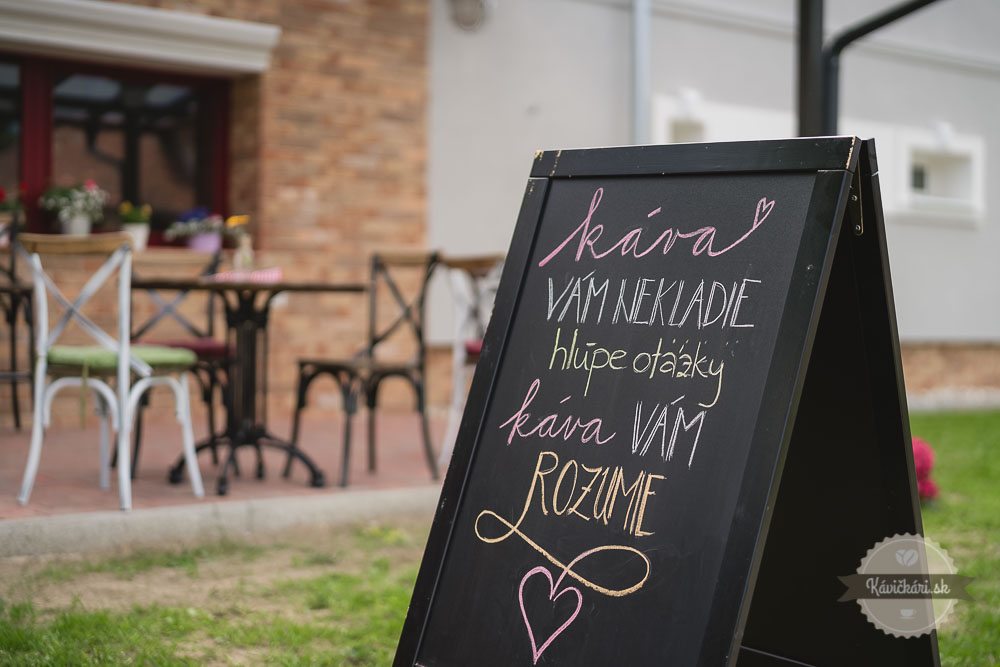 káva
VÁM NEKLADIE
hlúpe otázky
káva VÁM
ROZUMIE
Kávičkári.sk